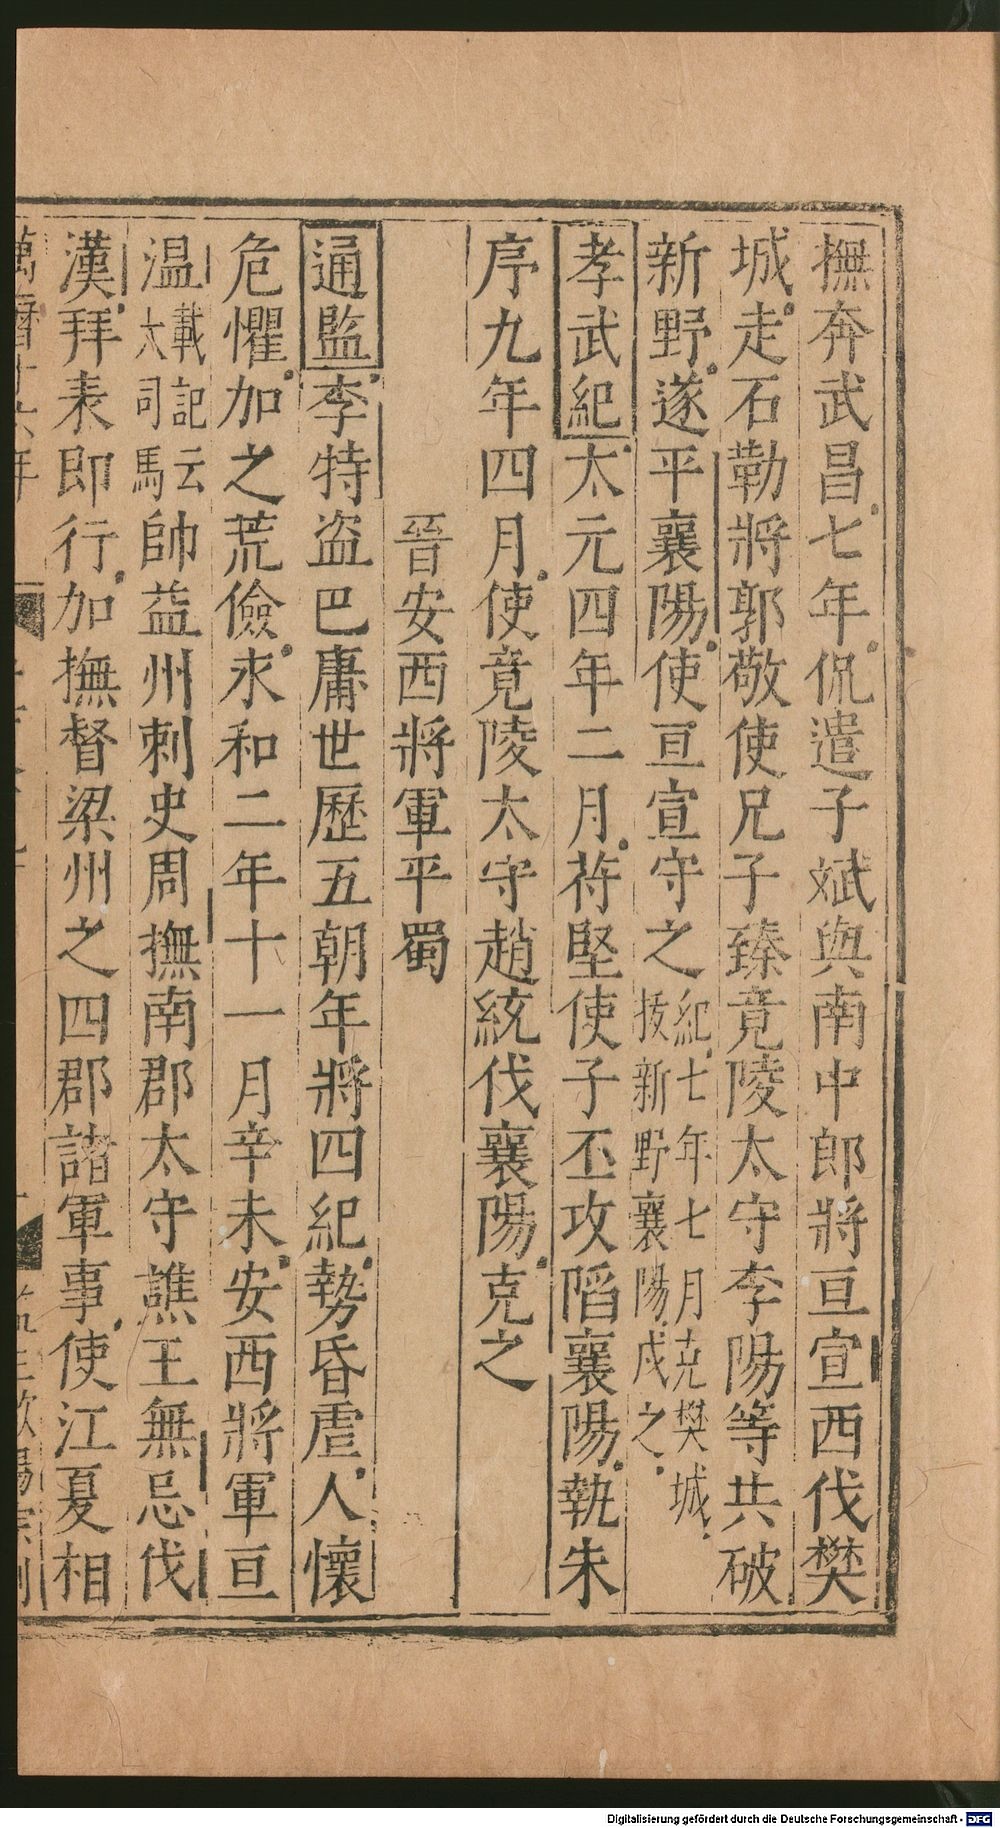 撫奔武昌七年侃遣子斌與南中郎將亘宣西伐樊
城走石勒將郭敬使兄子臻竟陵太守李陽等共破
新野遂平襄陽使亘宣守之紀七年七月克樊城技新野襄陽戍之
孝武紀太元四年二月苻堅使子丕攻陷襄陽執朱
序九年四月使竟陵太守趙統伐襄陽克之
晉安西將軍平蜀
通監李特盜巴庸世歷五朝年將四紀勢昏虐人懷
危懼加之荒儉永和二年十一月辛未安西將軍亘
温載記云大司馬帥益州刺史周撫南郡太守譙王無忌伐
漢拜表即行加撫督梁州之四郡諸軍事使江夏相
萬曆十六年
Digitalisierung gefördert durch die Deutsche Forschungsgemeinschaft - DFG